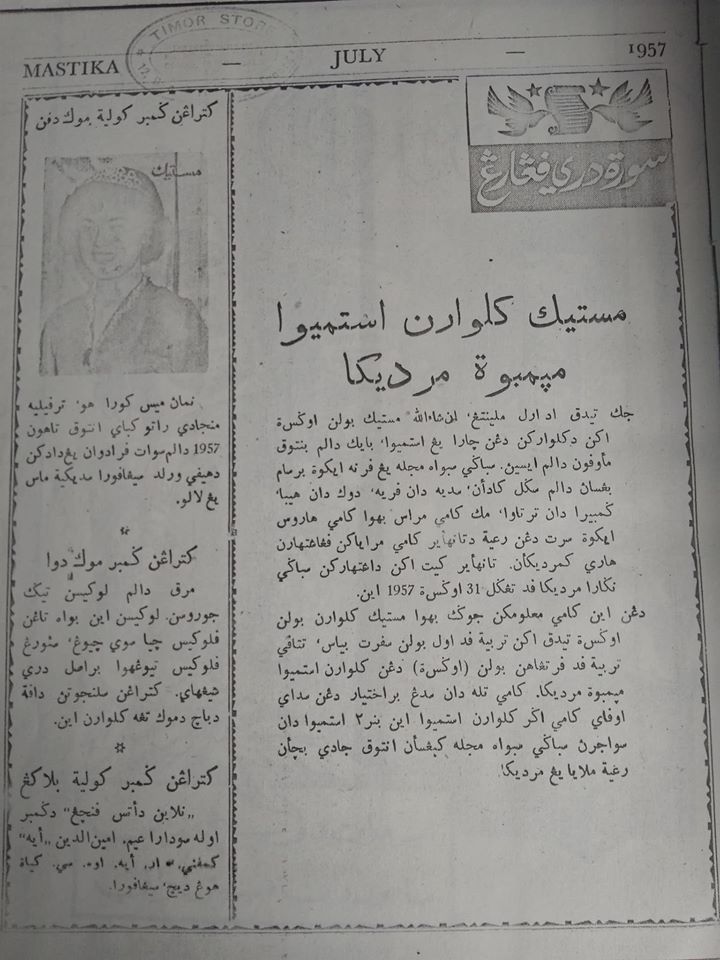 TIMOR STORE
MASTIKA — JULY — 1957
سورة دري ڤڠارڠ
مستيك كلوارن استميوا
مڽمبوة مرديكا
جك تيدق اد ارل ملينتڠ٬ ان شاءالله مستيك بولن اوݢسة
اكن دكلواركن دڠن چارا يڠ استميوا٬ بايك دالم بنتوق
ماوڤون دالم ايسين. سباݢي سبواه مجله يڠ ڤرنه ايكوة برسام
بڠسان دالم سݢل كادأن٬ سديه دان ڤريه٬ دوك دان هيبا٬
ݢمبيرا دان ترتاوا٬ مك كامي مراس بهوا كامي هاروس
ايكوة سرت دڠن رعية دتانهاير كامي مراياكن ڤڠاشتهارن
هاري كمرديكأن. تانهاير كيت اكن داشتهاركن سباݢي
نݢارا مرديكا ڤد تڠݢل 31 اوݢسة 1957 اين.
دڠن اين كامي معلومكن جوݢ بهوا مستيك كلوارن بولن
اوݢسة تيدق اكن تربية ڤد اول بولن سڤرت بياس٬ تتاڤي
تربية ڤد ڤرتڠاهن بولن (اوݢسة) دڠن كلوارن استميوا
مڽمبوة مرديكا. كامي تله دان سدڠ براختيار دڠن سداي
اوڤاي كامي اݢر كلوارن استميوا اين بنر٢ استميوا دان
سواجرن سباݢي سبواه مجله كبڠسأن انتوق جادي بچأن
رعية ملايا يڠ مرديكا.
كتراڠن ݢمبر كولية موك دڤن
مستيك
نمان ميس كورا هو٬ ترڤيليه
منجادي راتو كباي انتوق تاهون
1957 دالم سوات ڤرادوان يڠ دادكن
دهيڤي ورلد سيڠاڤورا سديكية ماس
يڠ لالو.
*
كتراڠن ݢمبر موك دوا
مرق دالم لوكيسن تيݢ
جوروس. لوكيسن اين بواه تاڠن
ڤلوكيس چيا سوي چيوڠ٬ سئورڠ
ڤلوكيس تيوڠهوا براصل دري
شيڠهاي. كتراڠن سلنجوتن داڤة
دباچ دموك تڠه كلوارن اين.
*
كتراڠن ݢمبر كولية بلاكڠ
„نلاين دأتس ڤنچڠ” دݢمبر
اوله سودارا عيم. امين الدين „ايه”
اوه. سي. كياة
هوڠ ديڽ٬ سيڠاڤورا.